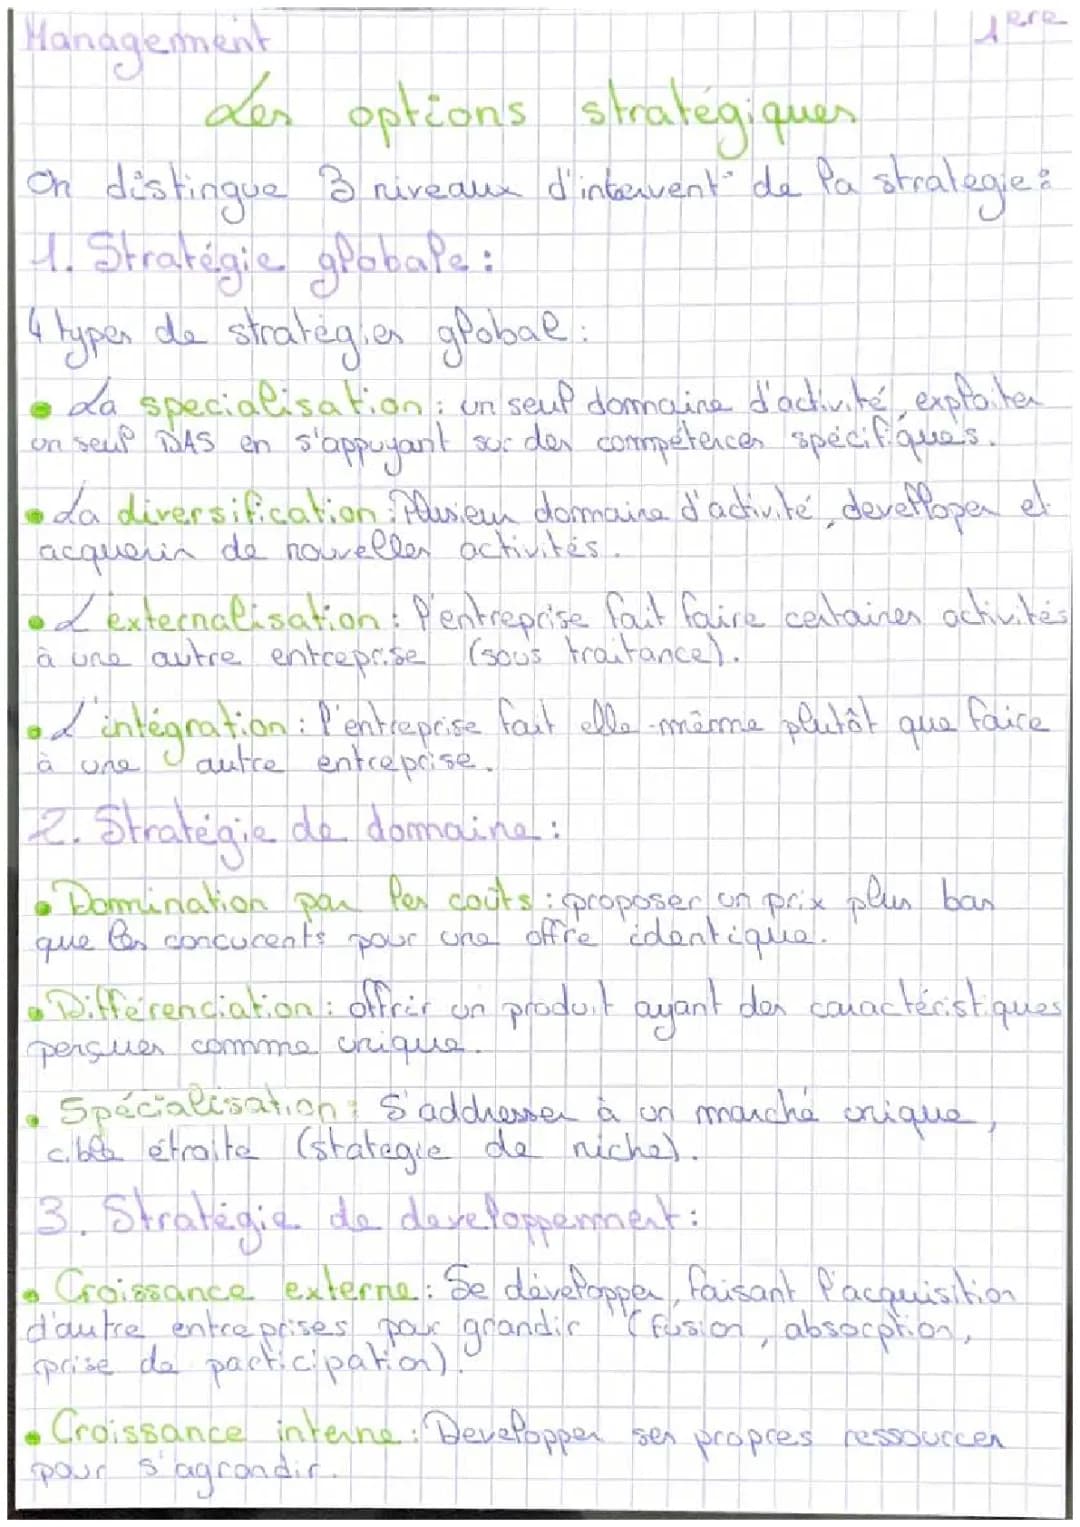 Management 1ère
Les options stratégiques
On distingue 3 niveaux d'intervent° de la strategie :
1. Stratégie globale :
4 types de stratégies global :
• La specialisation : un seul domaine d'activité, exploiter
un seul DAS en s'appuyant sur des compétences spécifiques.
• La diversification : Plusieur domaine d'activité, develloper et
acquerir de nouvelles activités.
• L'externalisation : l'entreprise fait faire certaines activités
à une autre entreprise (sous traitance).
• L'intégration : l'entreprise fait elle-même plutôt que faire
à une autre entreprise.
2. Stratégie de domaine :
• Domination par les coûts : proposer un prix plus bas
que les concurents pour une offre identique.
• Différenciation : offrir un produit ayant des caractéristiques
perçues comme unique.
• Spécialisation : S'addresser à un marché unique,
cible étroite (stategie de niche).
3. Stratégie de developpement :
• Croissance externe : Se développer, faisant l'acquisition
d'autre entreprises pour grandir (fusion, absorption,
prise de participation).
• Croissance interne : Developper ses propres ressources
pour s'agrandir.